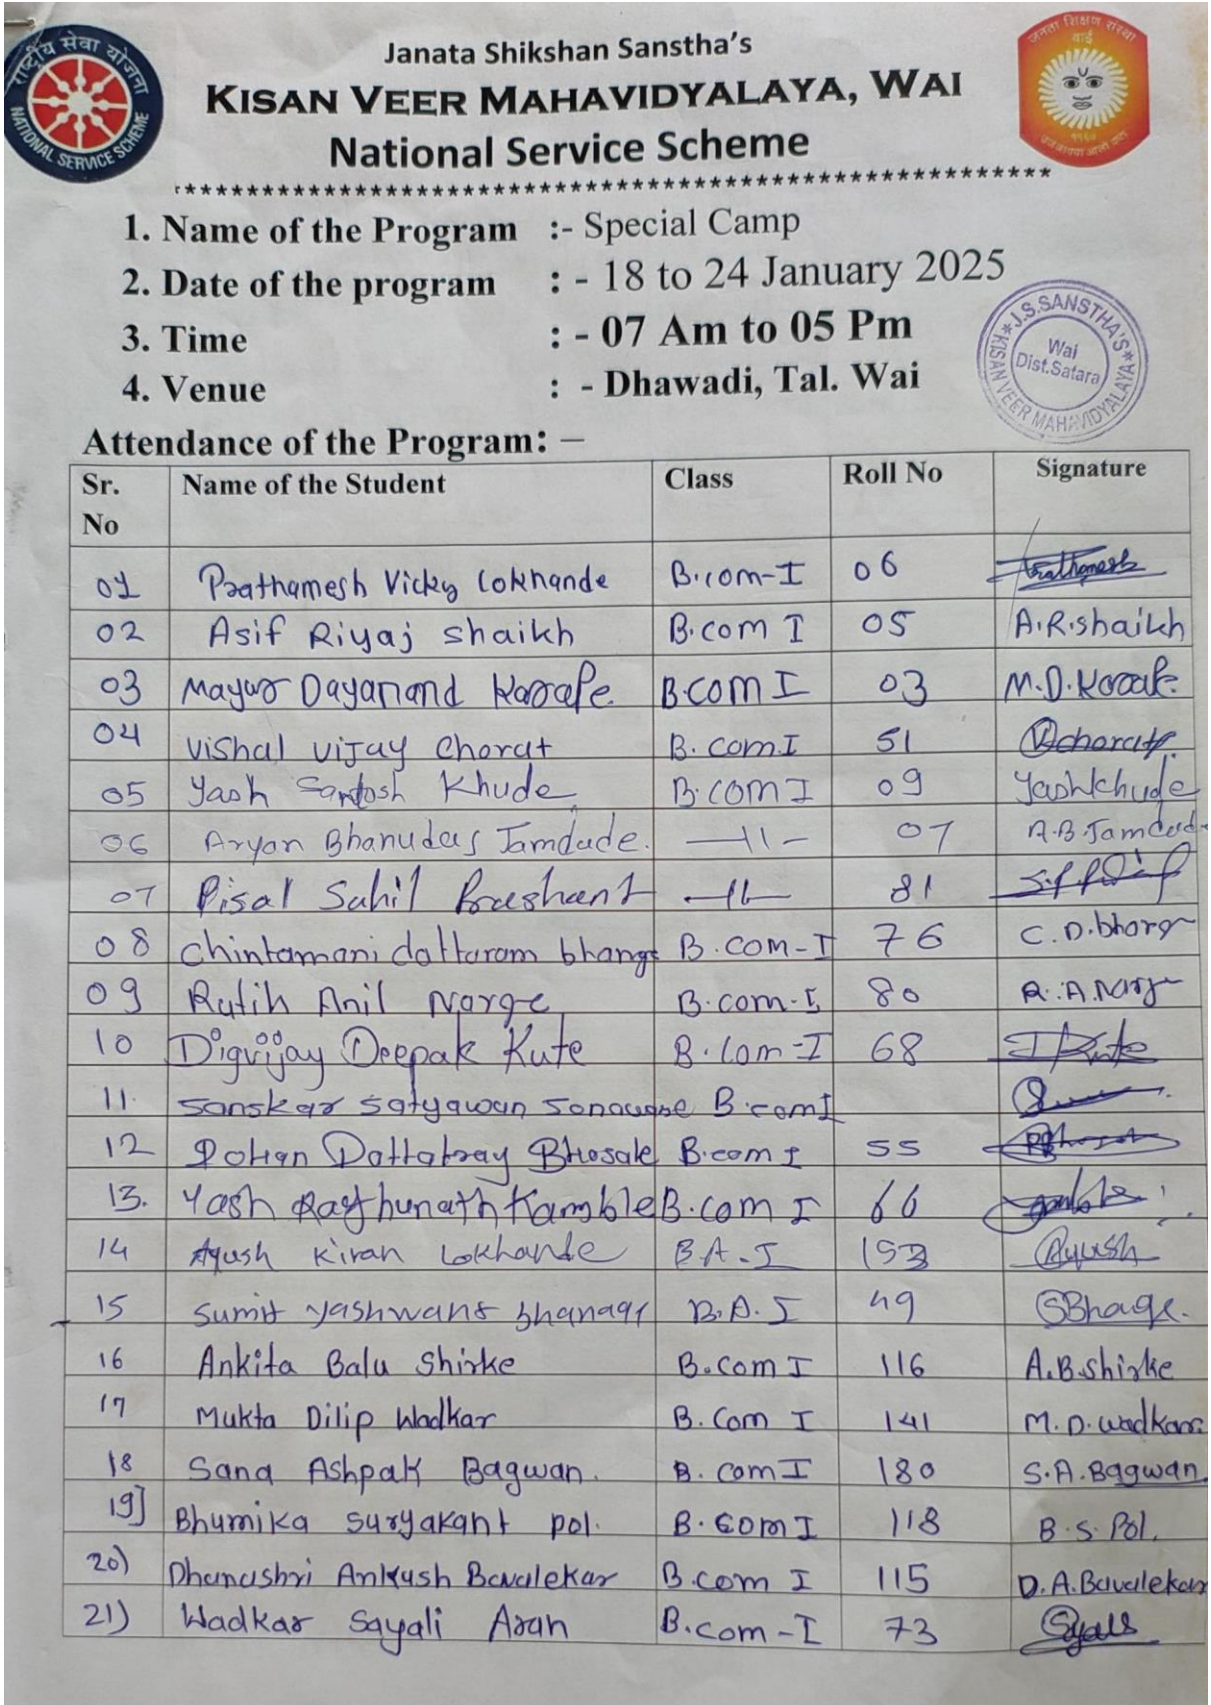 राष्ट्रीय सेवा योजना
NATIONAL SERVICE SCHEME
जनता शिक्षण संस्था
वाई
Janata Shikshan Sanstha's
KISAN VEER MAHAVIDYALAYA, WAI
National Service Scheme
1. Name of the Program :- Special Camp
2. Date of the program : - 18 to 24 January 2025
3. Time : - 07 Am to 05 Pm
4. Venue : - Dhawadi, Tal. Wai
J.S.SANSTHA'S
KISAN VEER MAHAVIDYALAYA
Wai
Dist.Satara
Attendance of the Program: –
Sr. No Name of the Student Class Roll No Signature
01 Prathamesh Vicky Lokhande B.com-I 06 Prathamesh
02 Asif Riyaj Shaikh B.com I 05 A.R.shaikh
03 Mayur Dayanand B.com I 03 M.D.
04 Vishal Vijay Chorat B. com I 51 Vchorat
05 Yash Santosh Khude B.com I 09 Yashkhude
06 Aryan Bhanudas Jamdade. —11— 07 A.B.Jamdad
07 Pisal Sahil Prashant —11— 81
08 Chintamani dattaram bhange B. com-I 76 C.D.bhange
09 Rutih Anil Narge B.com-I 80 R.A.Narge
10 Digvijay Deepak Kute B.com-I 68 Kute
11. Sanskar Satyawan Sonawane B.com I
12 Rohan Dattatray Bhosale B.com I 55
13. Yash Raghunath Kamble B.com I 66
14 Ayush Kiran Lokhande B.A-I 153 Ayush
15 Sumit Yashwant B.A. I 49
16 Ankita Balu Shirke B.com I 116 A.B.Shirke
17 Mukta Dilip Wadkar B.Com I 141 M.D.Wadkar
18 Sana Ashpak Bagwan. B. com I 180 S.A.Bagwan
19] Bhumika Suryakant pol. B.com I 118 B.S.Pol.
20) Dhanashri Ankush Bavalekar B.com I 115 D.A.Bavalekar
21) Wadkar Sayali Arun B.com-I 73